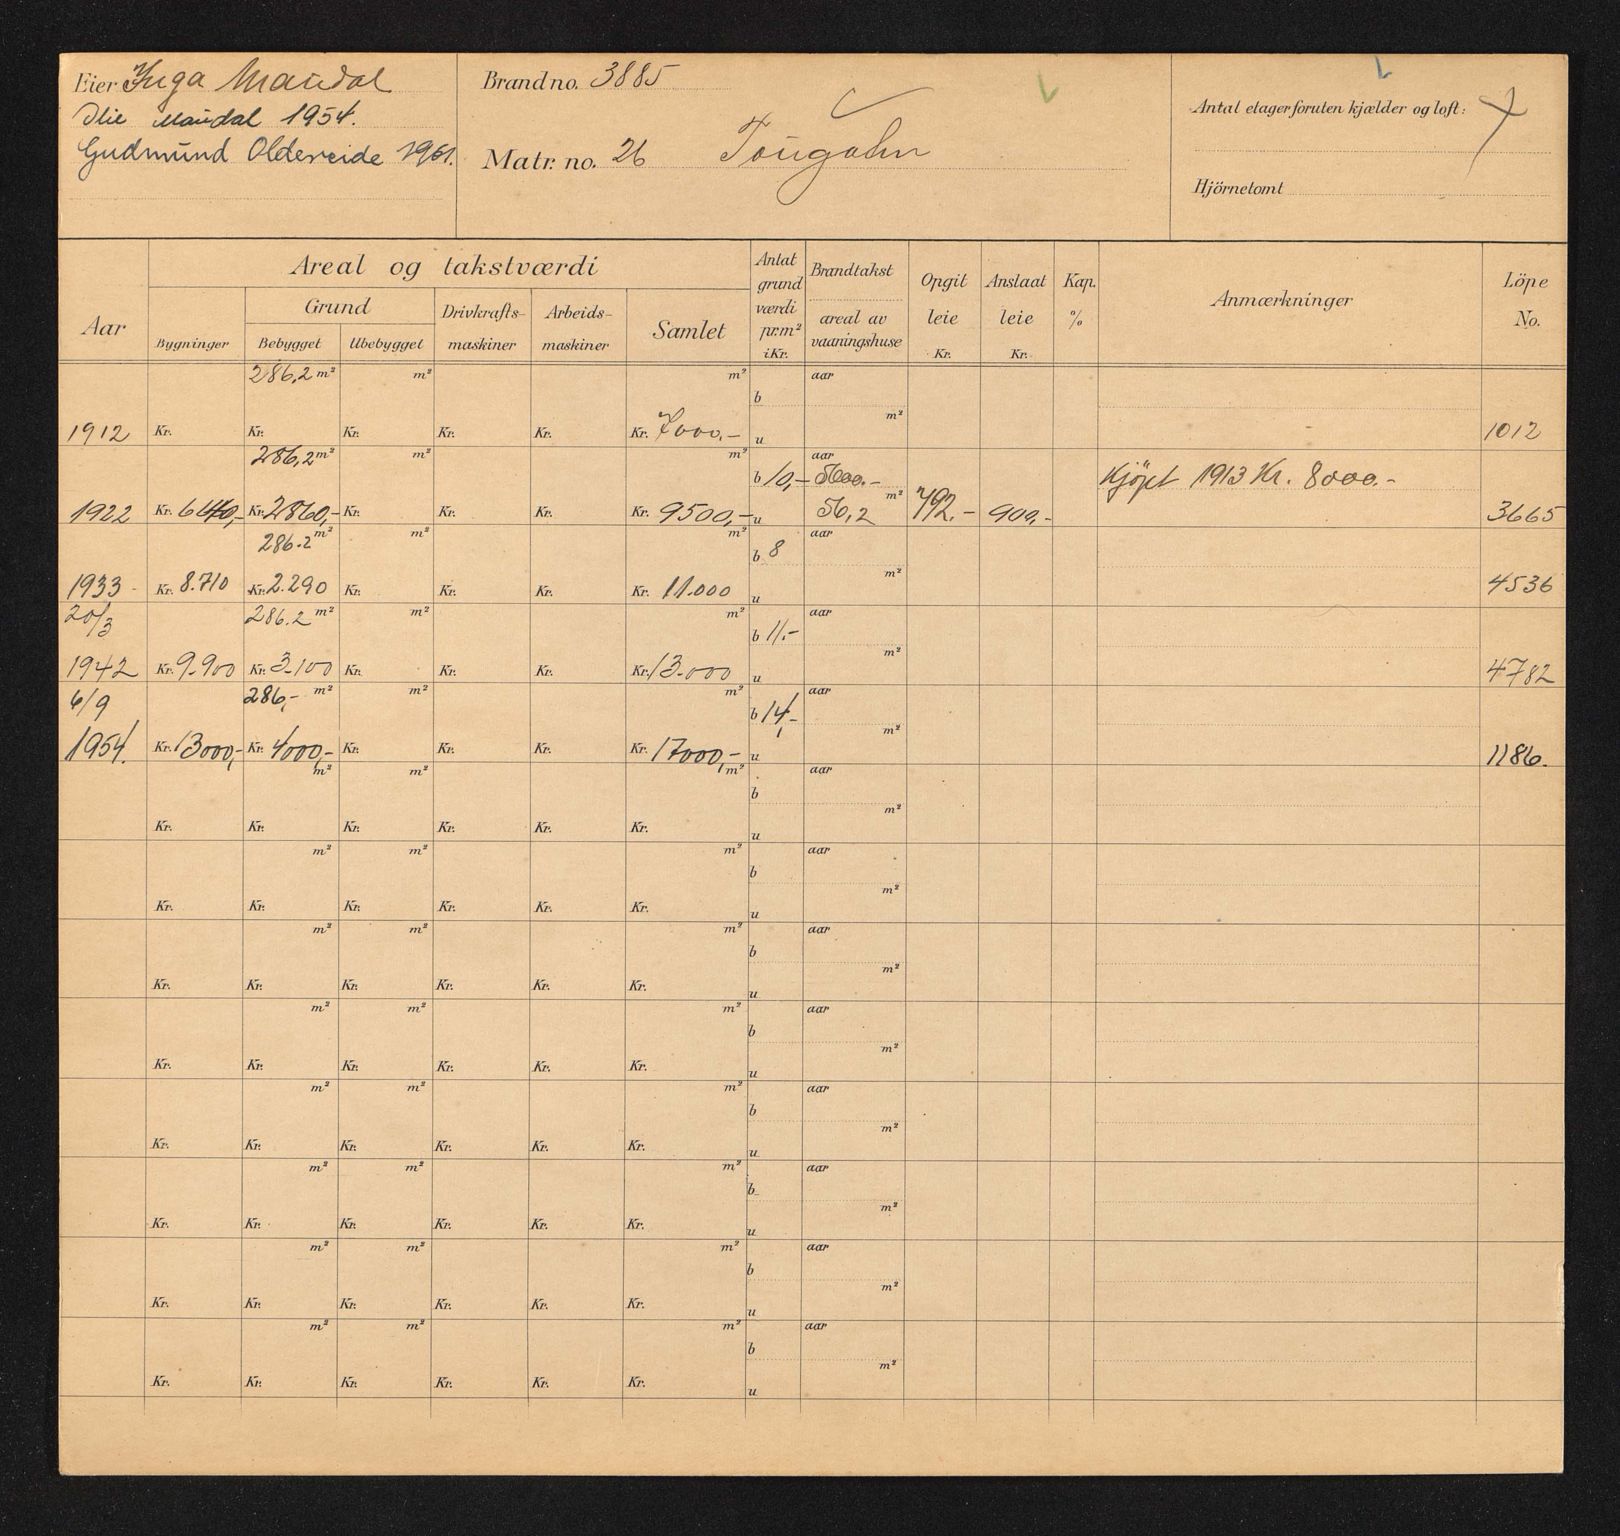 Eier Inga Maudal
Olie Maudal 1954.
Gudmund Oldereide 1961.
Brand no. 3885
Matr. no. 26
Antal etager foruten kjælder og loft:
Hjörnetomt
Aar
Areal og takstværdi
Bygninger
Grund
Bebygget Ubebygget
Drivkrafts-
maskiner
Arbeids-
maskiner
Samlet
Antat
grund
værdi
pr.m²
i Kr.
Brandtakst
areal av
vaaningshuse
Opgit
leie
Kr.
Anslaat
leie
Kr.
Kap.
%
Anmærkninger
Löpe
No.
286,2 m² m² m² aar
b
m²
1912 Kr. Kr. Kr. Kr. Kr. Kr. 7000.- u 1012
286,2 m² m² m² aar
b 10,- 5600.- Kjöpt 1913 Kr. 8000.-
m²
1922 Kr. 6640,- Kr. 2860,- Kr. Kr. Kr. Kr. 9500,- u 56,2 792.- 900,- 3665
286.2 m² m² m² aar
b 8
m²
1933 Kr. 8.710 Kr. 2.290 Kr. Kr. Kr. Kr. 11.000 u 4536
20/3 286.2 m² m² m² aar
b 11.-
m²
1942 Kr. 9.900 Kr. 3.100 Kr. Kr. Kr. Kr. 13.000 u 4782
6/9 286,- m² m² m² aar
b 14,-
m²
1954. Kr. 13000,- Kr. 4000,- Kr. Kr. Kr. Kr. 17000,- u 1186.
m² m² m² aar
b
m²
Kr. Kr. Kr. Kr. Kr. Kr. u
m² m² m² aar
b
m²
Kr. Kr. Kr. Kr. Kr. Kr. u
m² m² m² aar
b
m²
Kr. Kr. Kr. Kr. Kr. Kr. u
m² m² m² aar
b
m²
Kr. Kr. Kr. Kr. Kr. Kr. u
m² m² m² aar
b
m²
Kr. Kr. Kr. Kr. Kr. Kr. u
m² m² m² aar
b
m²
Kr. Kr. Kr. Kr. Kr. Kr. u
m² m² m² aar
b
m²
Kr. Kr. Kr. Kr. Kr. Kr. u
m² m² m² aar
b
m²
Kr. Kr. Kr. Kr. Kr. Kr. u